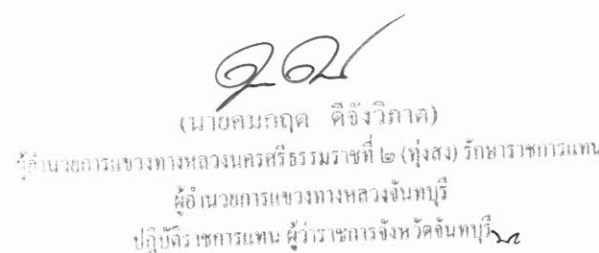 (นายคมกฤต ดีจังวิภาต)
ผู้อำนวยการแขวงทางหลวงนครศรีธรรมราชที่ ๒ (ทุ่งสง) รักษาราชการแทน
ผู้อำนวยการแขวงทางหลวงจันทบุรี
ปฏิบัติราชการแทน ผู้ว่าราชการจังหวัดจันทบุรี